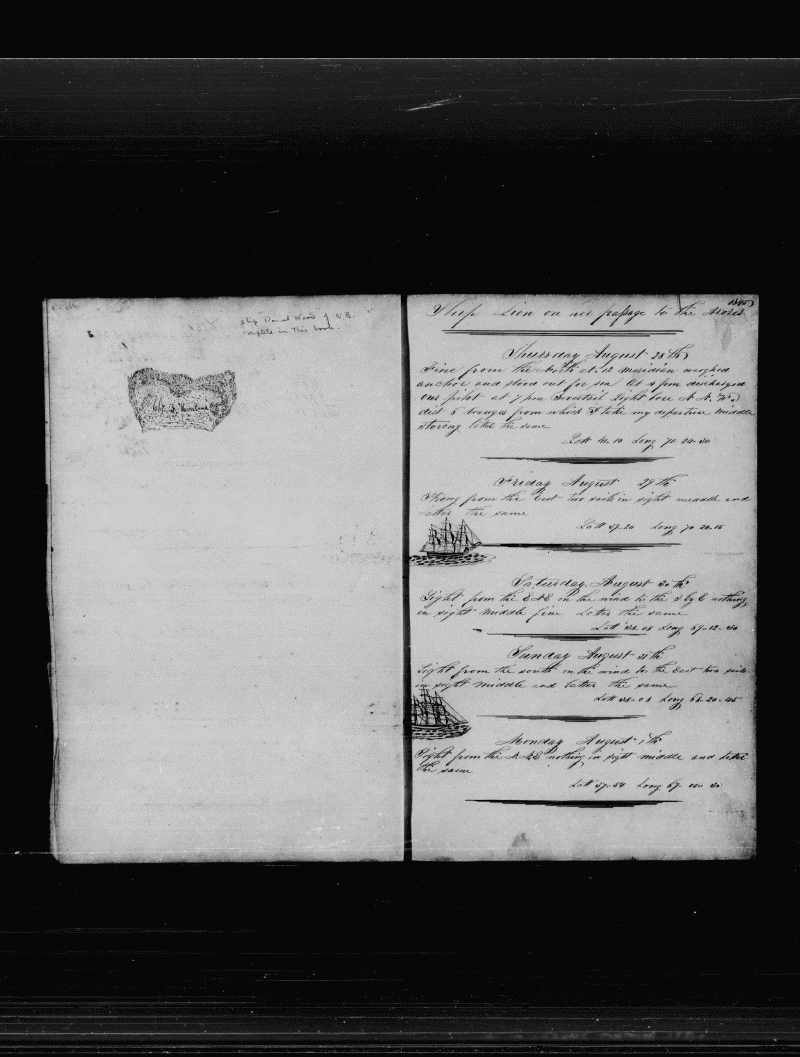 ship Daniel Wood of N.B.
complete in this book.
1845
Ship Lion on her passage to the Azores
Thursday August 28th
Fine from the North at 12 meridien weighed
anchor and stood out for sea At 4 pm discharged
our pilot at 7 pm light bore N.N.W
dist 5 leagues from which I take my departure middle
strong later the same
Latt 41.10 Long 71.24.30
Friday August 29th
Strong from the East two sails in sight middle and
latter the same
Latt 39.20 Long 70.20.15
Saturday August 30th
Light from the ENE on the wind to the S by E nothing
in sight middle fine Later the same
Latt 38.08 Long 69.12.30
Sunday August 31th
Light from the south on the wind to the East two sails
in sight middle and latter the same
Latt 38.08 Long 68.20.45
Monday August 1th
Light from the NNE nothing in sight middle and later
the same
Latt 37.54 Long 67.00.30